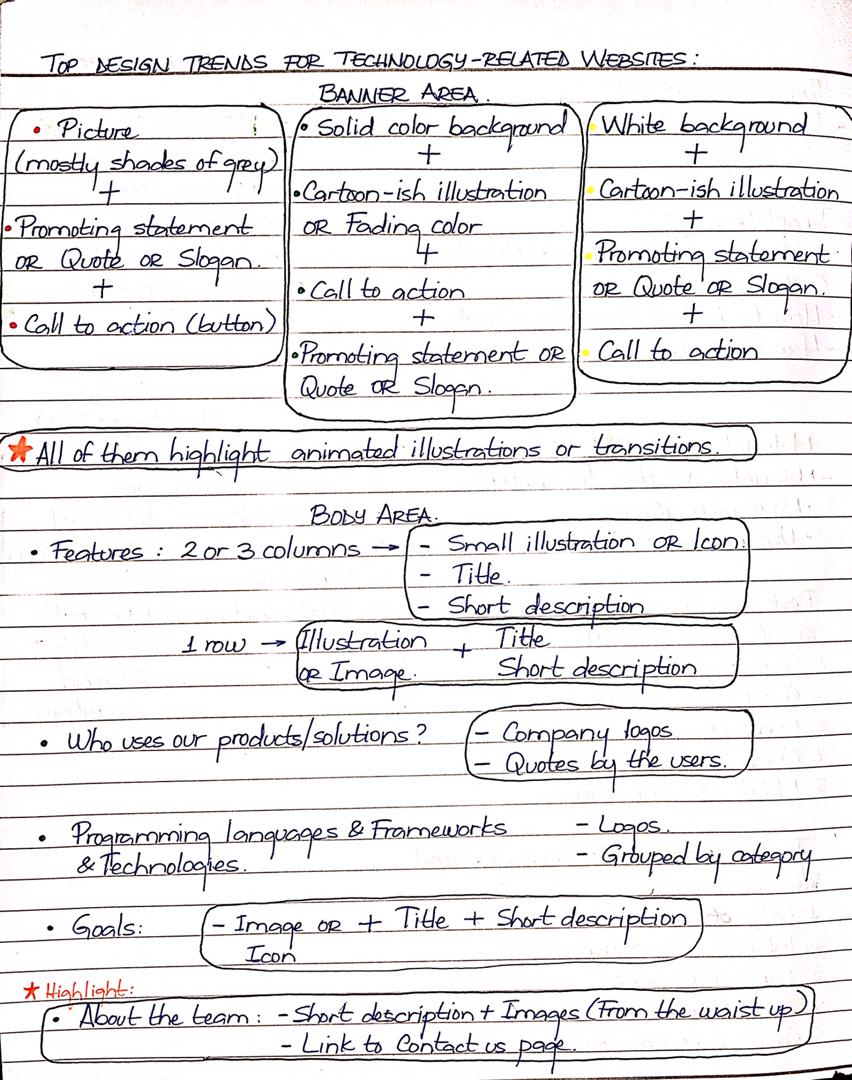 TOP DESIGN TRENDS FOR TECHNOLOGY-RELATED WEBSITES:
BANNER AREA.
• Picture
(mostly shades of grey)
+
• Promoting statement
OR Quote OR Slogan.
+
• Call to action (button)
• Solid color background
+
• Cartoon-ish illustration
OR Fading color
+
• Call to action
+
• Promoting statement OR
Quote OR Slogan.
• White background
+
• Cartoon-ish illustration
+
• Promoting statement
OR Quote OR Slogan.
+
• Call to action
★ All of them highlight animated illustrations or transitions.
BODY AREA.
• Features : 2 or 3 columns → - Small illustration OR Icon.
- Title.
- Short description
1 row → Illustration + Title
OR Image. Short description
• Who uses our products/solutions? - Company logos
- Quotes by the users.
• Programming languages & Frameworks - Logos.
& Technologies. - Grouped by category
• Goals: - Image OR + Title + Short description
Icon
★ Highlight:
• About the team : - Short description + Images (From the waist up)
- Link to Contact us page.